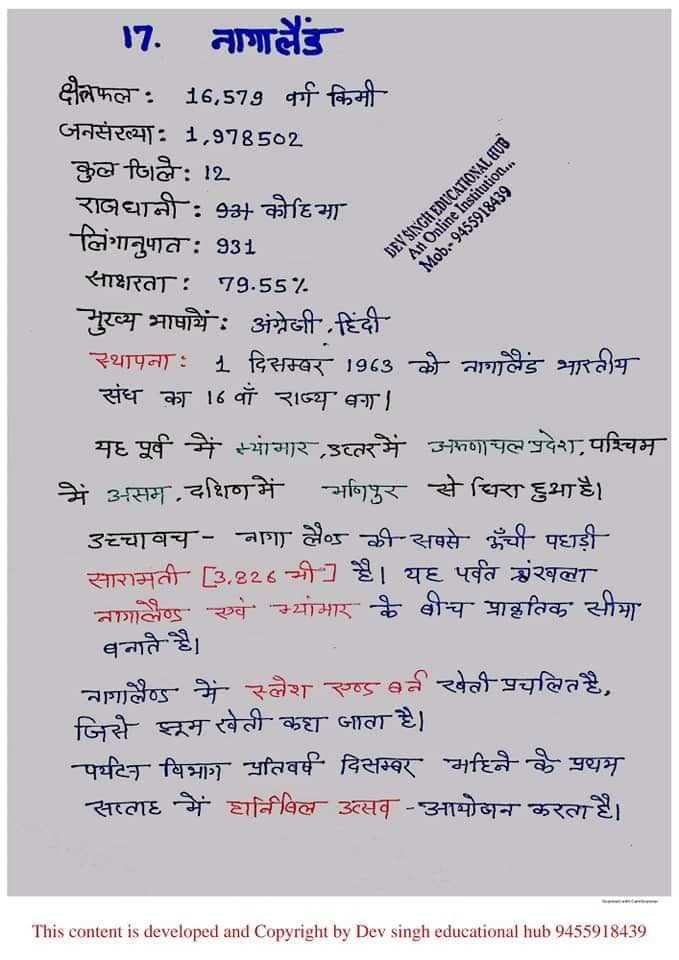 17. नागालैंड
क्षेत्रफल : 16,579 वर्ग किमी
जनसंख्या : 1,978502
कुल जिले : 12
राजधानी : कोहिमा
लिंगानुपात : 931
साक्षरता : 79.55%
मुख्य भाषायें : अंग्रेजी, हिंदी
स्थापना : 1 दिसम्बर 1963 को नागालैंड भारतीय
संघ का 16 वाँ राज्य बना।
यह पूर्व में म्यांमार, उत्तर में अरुणाचल प्रदेश, पश्चिम
में असम, दक्षिण में मणिपुर से घिरा हुआ है।
उच्चावच - नागा लैण्ड की सबसे ऊँची पहाड़ी
सारामती [3,826 मी] है। यह पर्वत श्रंखला
नागालैण्ड एवं म्यांमार के बीच प्राकृतिक सीमा
बनाते है।
नागालैण्ड में स्लेश एण्ड बर्न खेती प्रचलित है,
जिसे झूम खेती कहा जाता है।
पर्यटन विभाग प्रतिवर्ष दिसम्बर महिने के प्रथम
सप्ताह में हार्नविल उत्सव - आयोजन करता है।
DEV SINGH EDUCATIONAL HUB
An Online Institution...
Mob.- 9455918439
Scanned with CamScanner
This content is developed and Copyright by Dev singh educational hub 9455918439